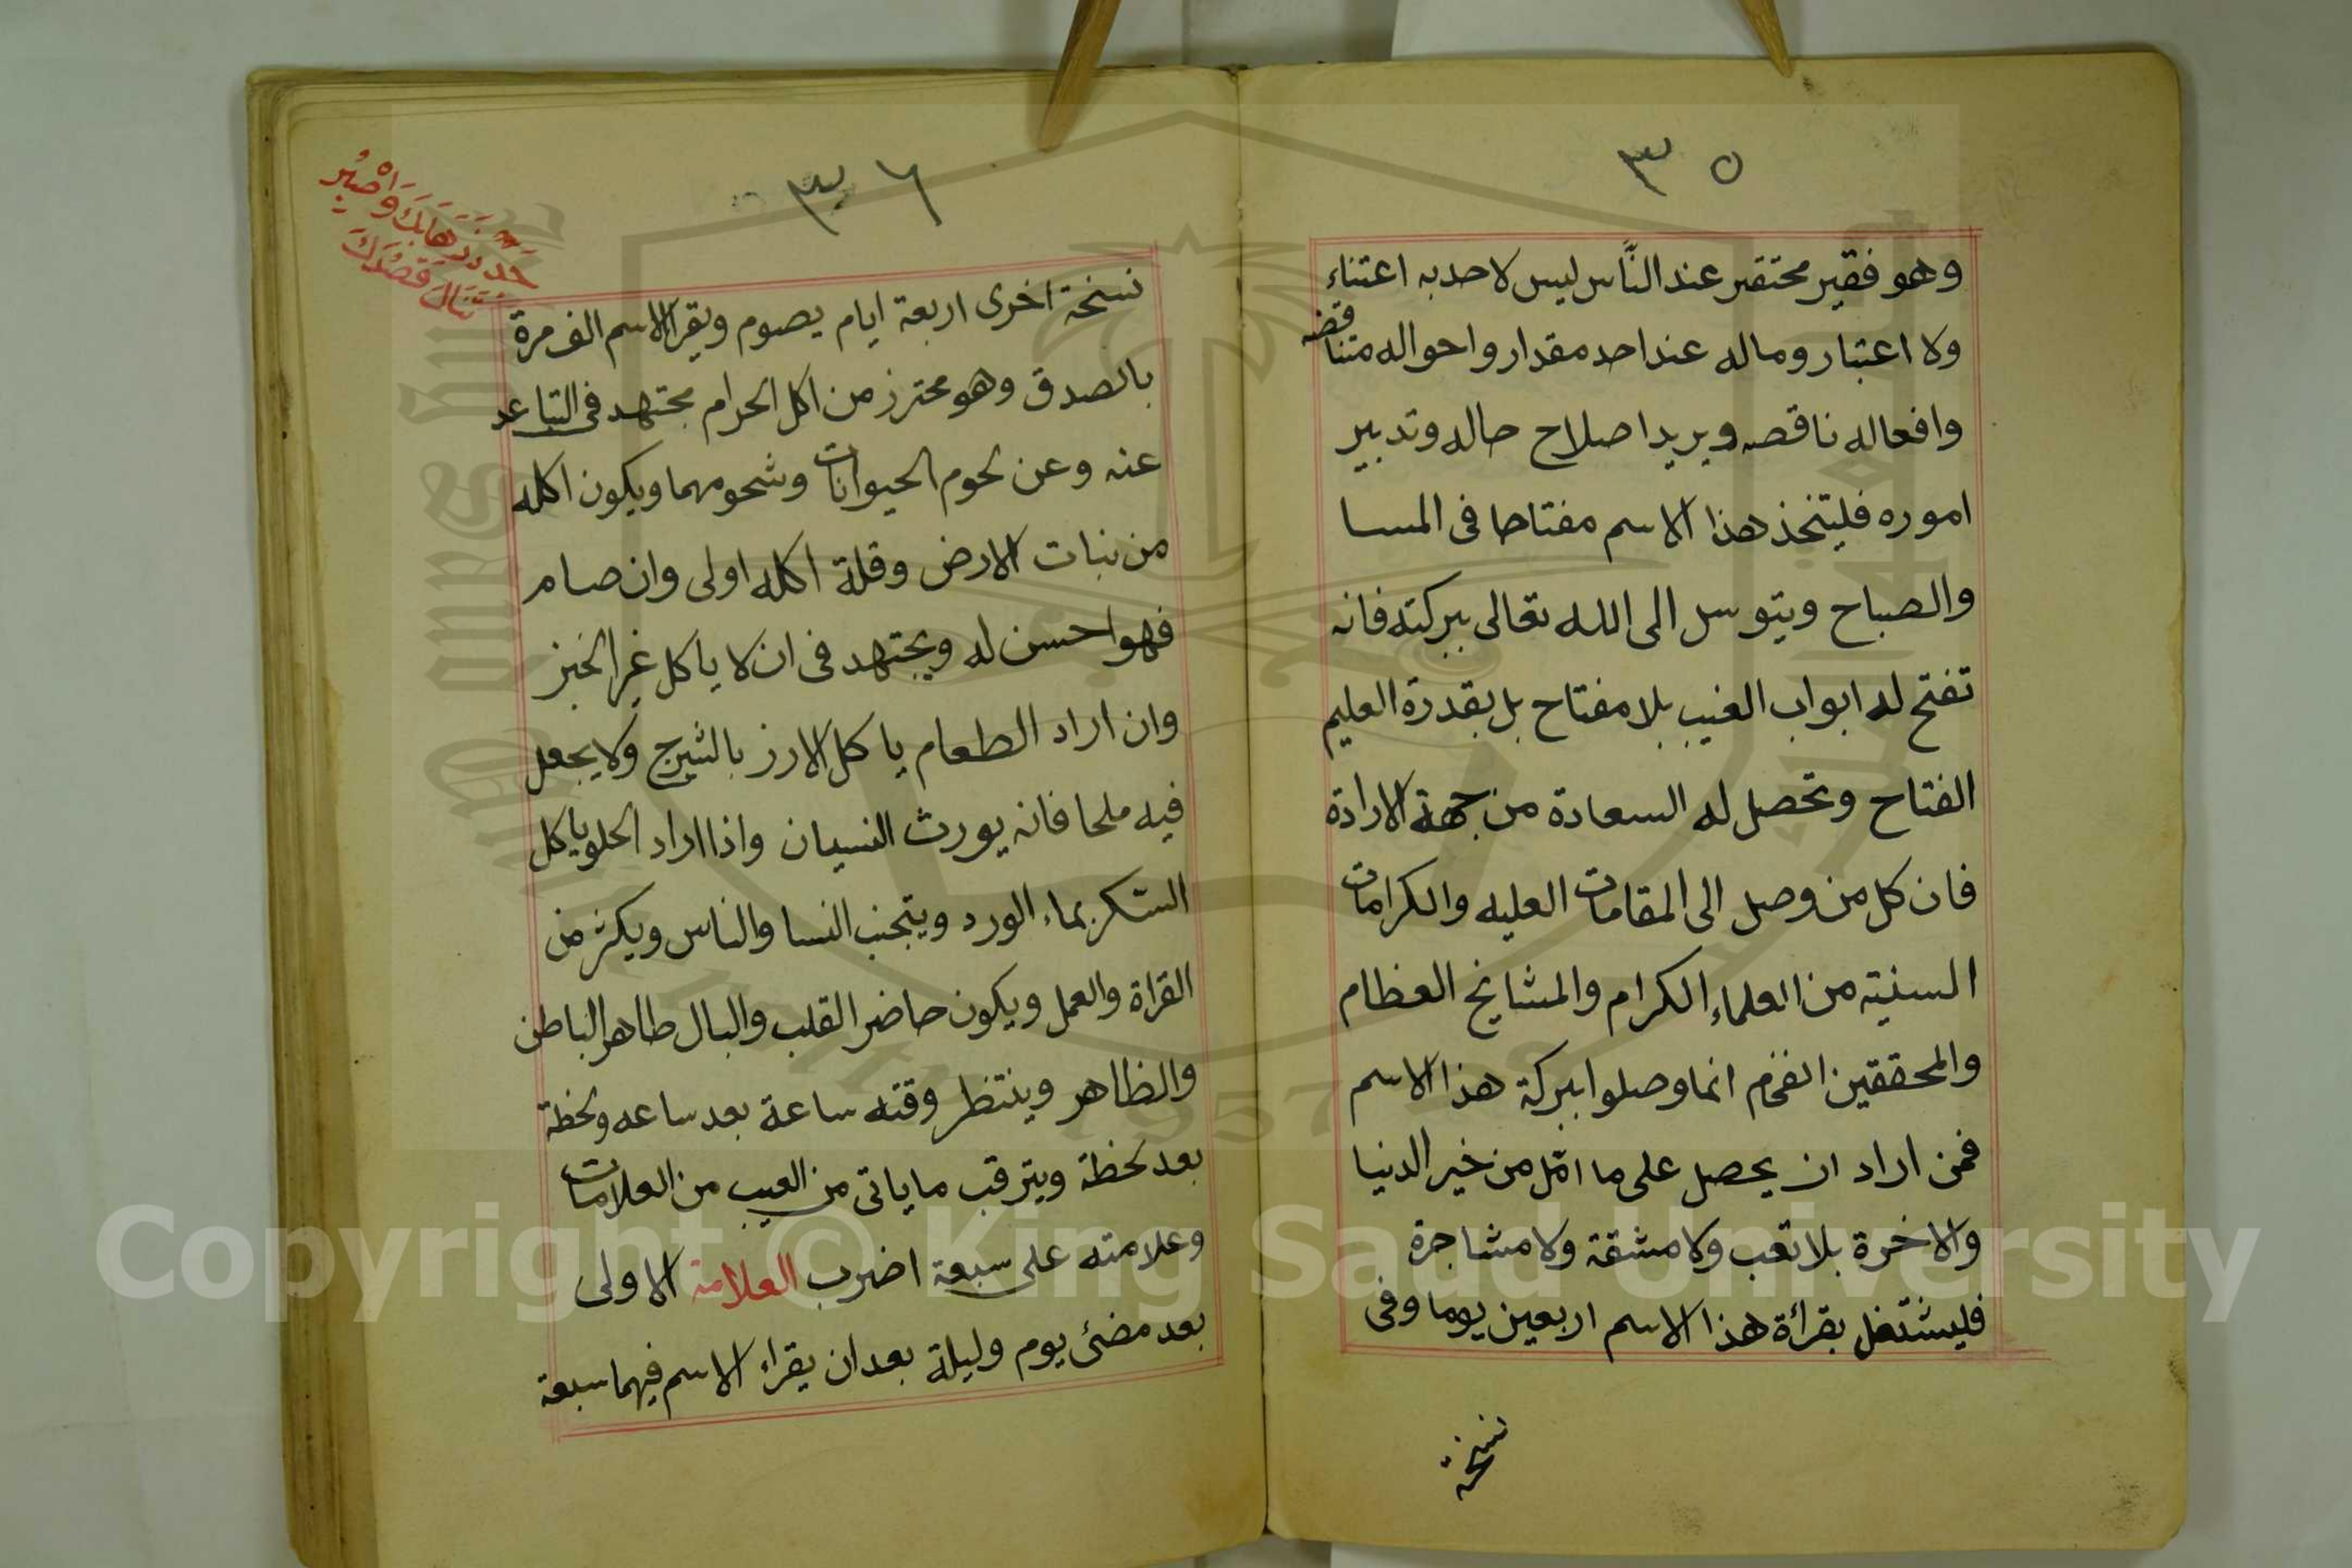 ٣٥
وهو فقير محتقر عند النّاس ليس لاحد به اعتناء
ولا اعتبار وماله عند احد مقدار واحواله متناقضه
وافعاله ناقصه ويريد اصلاح حاله وتدبير
اموره فليتخذ هذا الاسم مفتاحا فى المسا
والصباح ويتوسل الى الله تعالى ببركته فانه
تفتح له ابواب الغيب بلا مفتاح بل بقدرة العليم
الفتاح وتحصل له السعادة من جهة الارادة
فان كل من وصل الى المقامات العليه والكرامات
السنيته من العلماء الكرام والمشايخ العظام
والمحققين الفخم انما وصلوا ببركة هذا الاسم
فمن اراد ان يحصل على ما امّل من خير الدنيا
والاخرة بلا تعب ولا مشقة ولا مشاجرة
فليشتغل بقرائة هذا الاسم اربعين يوما وفى
نسخة
٣٦
واصبر
تنال قصدك
نسخة اخرى اربعة ايام يصوم ويقرا الاسم الف مرة
بالصدق وهو محترز من اكل الحرام مجتهد فى التباعد
عنه وعن لحوم الحيوانات وشحومهما ويكون اكله
من نبات الارض وقلة اكله اولى وان صام
فهو احسن له ويجتهد فى ان لا ياكل غير الخبز
وان اراد الطعام ياكل الارز بالشيرج ولا يجعل
فيه ملحا فانه يورث النسيان واذا اراد الحلو ياكل
السّكر بماء الورد ويتجنب النسا والناس ويكثر من
القراة والعمل ويكون حاضر القلب والبال طاهر الباطن
والظاهر وينتظر وقته ساعة بعد ساعه ولحظة
بعد لحظة ويترقب ما ياتى من الغيب من العلامات
وعلامته على سبعة اضرب العلامة الاولى
بعد مضئ يوم وليلة بعد ان يقراء الاسم فيهما سبعة
Copyright © King Saud University